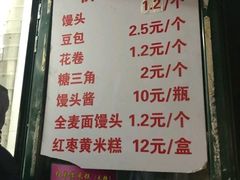 馒头 1.2/个
豆包 2.5元/个
花卷 1.2元/个
糖三角 2元/个
馒头酱 10元/瓶
全麦面馒头 1.2元/个
红枣黄米糕 12元/盒